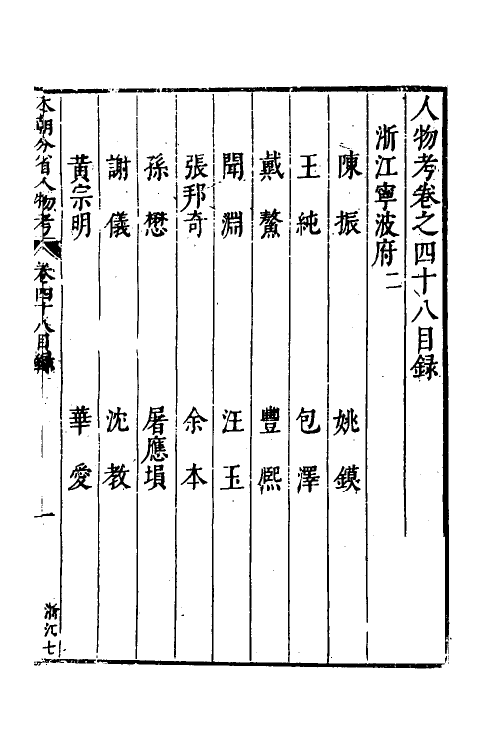 人物考卷之四十八目録
浙江寧波府二
陳振　姚鏌
王純　包澤
戴鰲　豐熈
聞淵　汪玉
張邦奇　余本
孫懋　屠應塤
謝儀　沈教
黃宗明　華愛
本朝分省人物考　卷四十八目録　一　浙江七